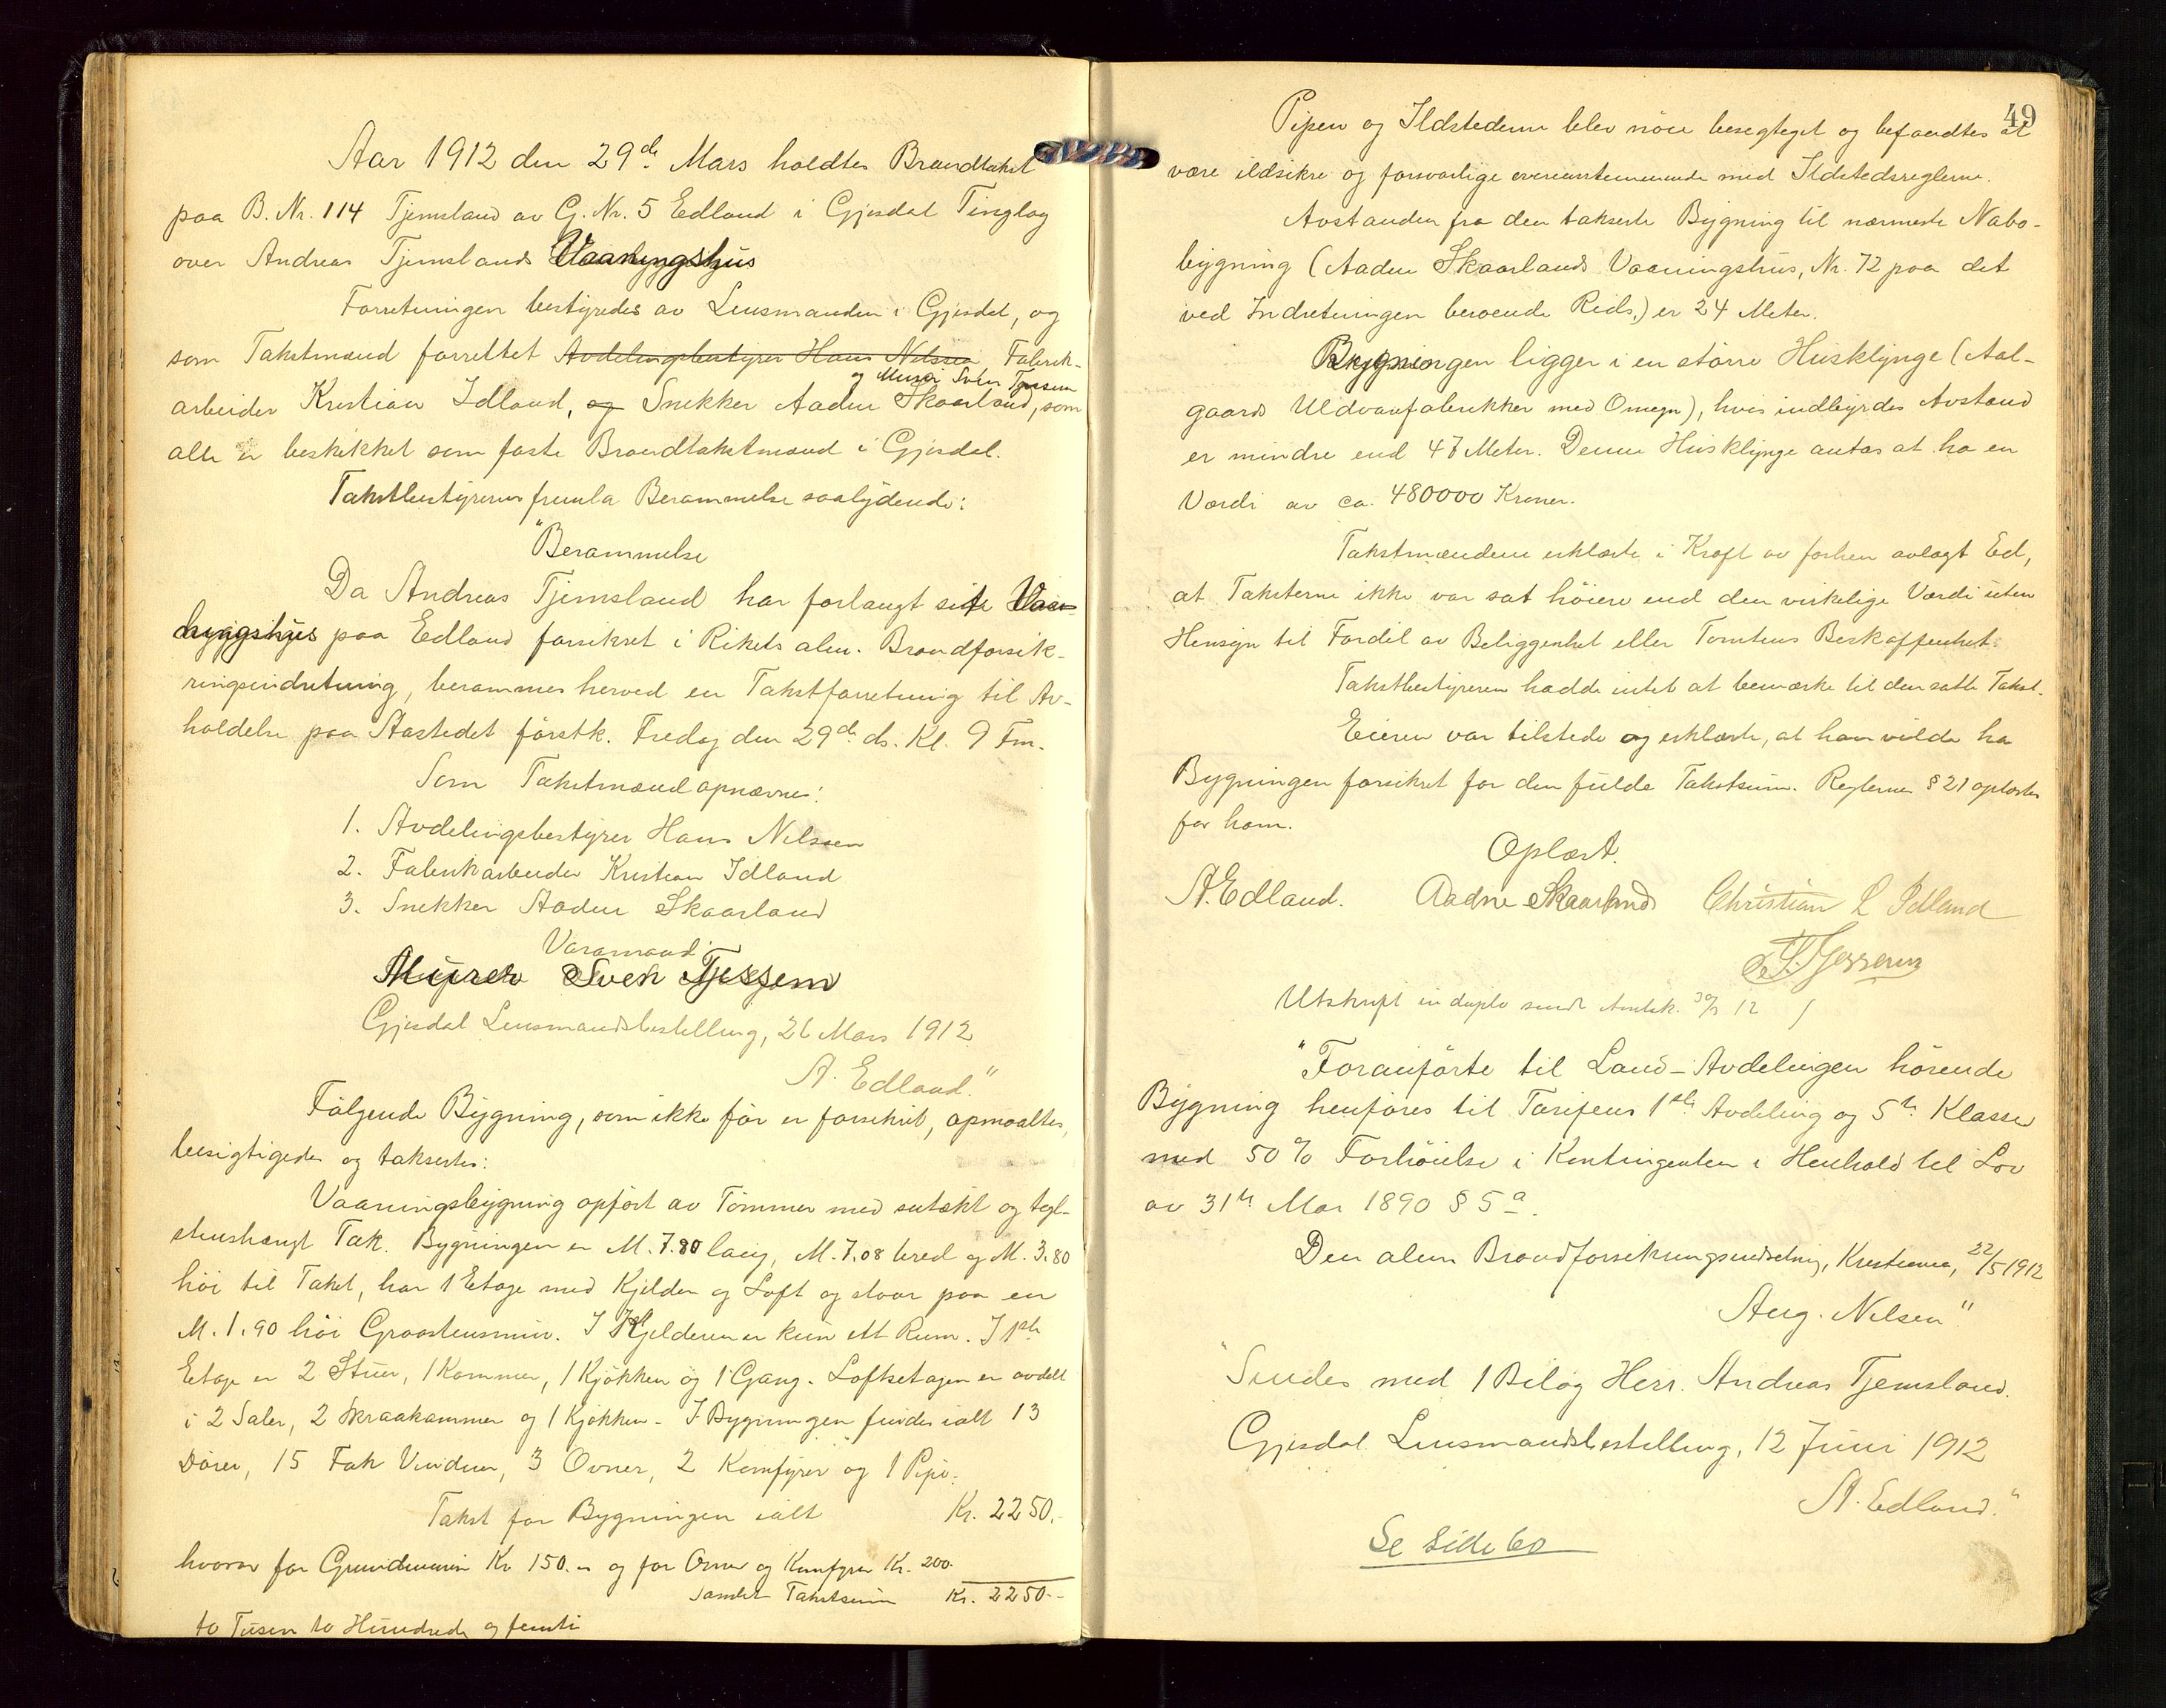 Aar 1912 den 29de Mars holdtes Brandtakst
paa B. Nr. 114 Tjemsland av G. Nr. 5 Edland i Gjesdal Tinglag
over Andreas Tjemslands Vaaningshus
Forretningen bestyredes av Lensmanden i Gjesdal, og
som Takstmænd forrettet Avdelingsbestyrer Hans Nilssen Fabrik-
og Murer Sven Tjessem
arbeider Kristian Idland, og Snekker Aadne Skaarland, som
alle er beskikket som faste Brandtakstmænd i Gjesdal.
Takstbestyreren fremla Berammelse saalydende:
"Berammelse
Da Andreas Tjemsland har forlangt sit Vaa-
ningshus paa Edland forsikret i Rikets alm. Brandforsik-
ringsindretning, berammes herved en Takstforretning til Av-
holdelse paa Aastedet förstk. Fredag den 29de ds. Kl. 9 Fm.
Som Takstmænd opnævnes:
1. Avdelingsbestyrer Hans Nilssen
2. Fabrikarbeider Kristian Idland
3. Snekker Aadne Skaarland
Varamand:
Murer Sven Tjessem
Gjesdal Lensmandsbestilling, 26 Mars 1912
A. Edland."
Fölgende Bygning, som ikke för er forsikret, opmaaltes,
besigtigedes og takseertes:
Vaaningsbygning opfört av Tömmer med sutækt og tegl-
stenshængt Tak. Bygningen er M. 7.80 lang, M. 7.08 bred og M. 3.80
höi til Taket, har 1 Etage med Kjelder og Loft og staar paa en
M. 1.90 höi Graastensmur. I Kjelderen er kun ett Rum. I 1ste
Etage er 2 Stuer, 1 Kammer, 1 Kjökken og 1 Gang. Loftsetagen er avdelt
i 2 Saler, 2 Skraakammer og 1 Kjökken. I Bygningen findes ialt 13
Dörer, 15 Fak Vinduer, 3 Ovner, 2 Komfyrer og 1 Pipe.
Takst for Bygningen ialt Kr. 2250.-
hvorav for Grundmuren Kr 150.- og for Ovner og Komfyrer Kr. 200.
Samlet Takstsum Kr. 2250.-
to Tusen to Hundrede og femti
49
Pipen og Ildstederne blev nöie besegteget og befandtes at
være ildsikre og forsvarlige overensstemmende med Ildstedsreglerne.
Avstanden fra den takserte Bygning til nærmeste Nabo-
bygning (Aadne Skaarlands Vaaningshus, Nr. 72 paa det
ved Indretningen beroende Rids,) er 24 Meter.
Bygningen ligger i en större Husklynge (Aal-
gaards Uldvarefabrikker med Omegn), hvis indbyrdes Avstand
er mindre end 47 Meter. Denne Husklynge antas at ha en
Værdi av ca. 480000 Kroner.
Takstmændene erklærte i Kraft av forhen avlagt Ed,
at Taksterne ikke var sat höiere end den virkelige Værdi uten
Hensyn til Fordel av Beliggenhet eller Tomtens Beskaffenhet.
Takstbestyreren hadde intet at bemærke til den satte Takst.
Eieren var tilstede og erklærte, at han vilde ha
Bygningen forsikret for den fulde Takstsum. Reglernes § 21 oplæstes
for ham.
Oplæst.
A. Edland. Aadne Skaarland Christian L Idland
S. Tjessem
Utskrift in duplo sendt Amtsk. 30/3 12
"Foranförte til Land-Avdelingen hörende
Bygning henföres til Tarifens 1ste Avdeling og 5te Klasse
med 50% Forhöielse i Kontingenten i Henhold til Lov
av 31te Mai 1890 § 5 a.
Den alm. Brandforsikringsindretning, Kristiania, 22/5 1912
Aug. Nilsen"
"Sendes med 1 Bilag Herr. Andreas Tjemsland.
Gjesdal Lensmandsbestilling, 12 Juni 1912
A. Edland."
Se side 60